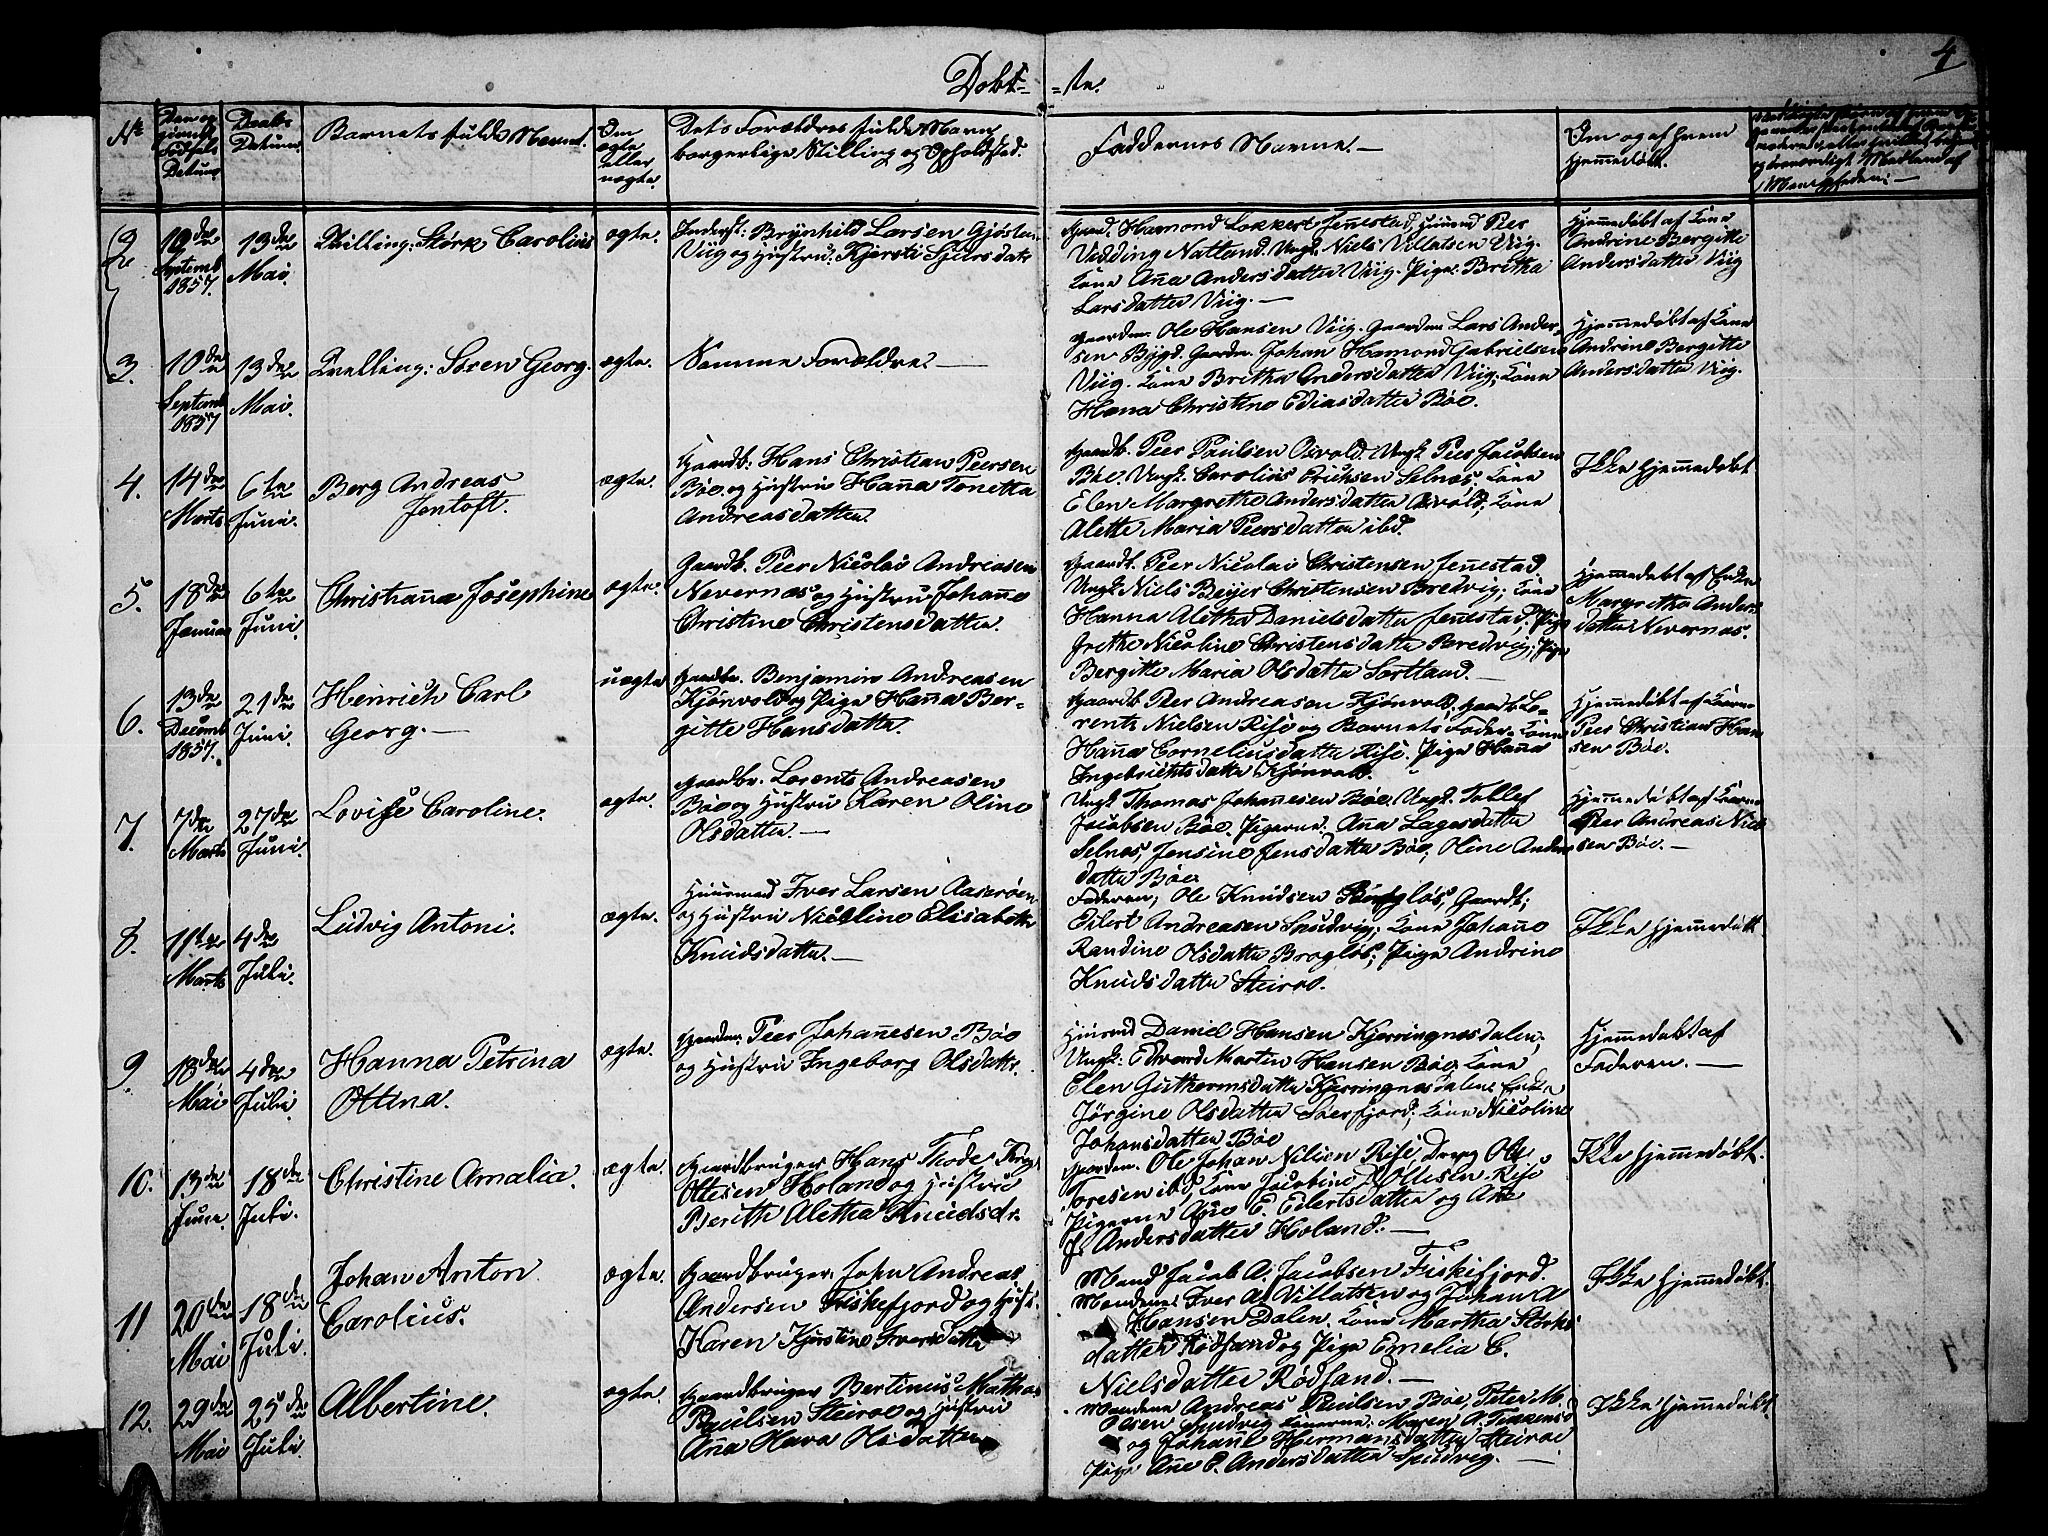 4
Døbte.
Nr.
Den og
Fødsels
Datum
Daabs
Datum
Barnets fulde Navne.
Om
ægte
eller
uægte.
Dets Forældres fulde Navn
borgerlige Stilling og Opholdsted.
Faddernes Navne. —
Om og af hvem
hjemmedøbt.
Menigheden. —
2
10de
Septemb
1857.
13de
Mai.
Tvilling: Størk Carolius
ægte.
Inderst: Brynhild Larsen
Viig og Hustru: Kjersti Sjursdatt
Gaard. Hamond Lokkert Jennestad, Huusmd Peer
Vedding Natland. Ungk. Niels Villatsen Viig.
Kone Anna Andersdatter Viig. Pige: Britha
Larsdatter Viig. —
Hjemmedøbt af Kone
Andrine Bergitte
Andersdatter Viig
3.
10de
Septemb
1857
13de
Mai.
Tvilling: Søren Georg.
ægte.
Samme Forældre. —
Gaardm. Ole Hansen Viig. Gaardm. Lars Ander-
sen Bygd. Gaardm. Johan Hamond Gabrielsen
Viig. Kone Britha Andersdatter Viig; Kone
Hanna Christine Ediasdatter Bøe.
Hjemmedøbt af Kone
Andrine Bergitte
Andersdatter Viig.
4.
14de
Marts
6te
Juni.
Berg Andreas
Jentoft.
ægte.
Gaardb: Hans Christian Peersen
Bøe. og Hustru Hanna Tonetta
Andreasdatter.
Gaardb. Peer Paulsen Osvold. Ungk. Peer Jacobsen
Bøe. Ungk. Carolius Erichsen Selnæs, Kone
Elen Margrethe Andersdatter Osvold, Kone
Alette Maria Peersdatter ibd.
Ikke hjemmedøbt
5.
18de
Januar
6te
Juni
Christianna Josephine
ægte.
Gaardb. Peer Nicolai Andreasen
Nevernæs og Hustru Johanne
Christine Christensdatter.
Gaardb. Peer Nicolai Christensen Jennestad
Ungk. Niels Beyer Christensen Bredvig; Kone
Hanna Aletha Danielsdatter Jennestad, Pige
Grethe Nicoline Christensdatter Bredvig; Pige
Bergitte Maria Olsdatter Sortland. —
Hjemmedøbt af Enke
Margretha Anders
datter Nevernæs.
6.
13de
Decemb
1857.
21de
Juni.
Heinrich Carl
Georg. —
uægte
Gaardbr. Benjamin Andreasen
Kjønvold og Pige Hanna Ber-
gitte Hansdatter.
Gaardb Peer Andreasen Kjønvold, Gaardb Lo-
rents Nielsen Risø og Barnets Fader. Kone
Hanna Corneliusdatter Risø. Pige Hanna
Ingebrichtsdatter Kjønvold.
Hjemmedøbt af
Peer Christian Han
sen Bøe.
7.
7de
Marts
27de
Juni.
Lovise Caroline.
ægte.
Gaardbr. Lorents Andreasen
Bøe og Hustru Karen Oline
Olsdatter. —
Ungk. Thomas Johannesen Bøe. Ungk. Tollef
Jacobsen Bøe. Pigerne. Anna Lagesdatter
Selnes, Jensine Jensdatter Bøe; Oline Anders
datter Bøe.
Hjemmedøbt af
Peer Andreas Niel
sen Bøe. —
8.
11te
Marts
4de
Juli.
Ludvig Antoni.
ægte.
Huusmand Iver Larsen Aaserøen
og Hustru Nicoline Elisabeth
Knudsdatter. —
Faderen, Ole Knudsen Brogløs, Gaardb;
Eilert Andreasen Spudvig; Kone Johanne
Randine Olsdatter Brogløs; Pige Andrine
Knudsdatter Steiroe.
Ikke hjemmedøbt
9.
18de
Mai
4de
Juli.
Hanna Petrina
Ottina.
ægte.
Gaardm. Peer Johannesen Bøe
og Hustru Ingeborg Olsdattr.
Huusmd Daniel Hansen Kjerringnesdalen;
Ungk: Edvard Martin Hansen Bøe, Kone
Elen Guthormsdatter Kjerringnesdalen, Enke
Jørgine Olsdatter Steerfjord; Kone Nicoline
Johansdatter Bøe
Hjemmedøbt af
Faderen. —
10.
13de
Juni.
18de
Juli.
Christine Amalia.
ægte.
Gaardbruger Hans Thode
Ottesen Holand og Hustru
Berith Aletha Knudsdr.
Gaardm. Ole Johan Nilsen Risø, Dreng Ole
Toresen ibd, Kone Jacobine D. Ottesen Risø
Pigerne Ane E. Eilertsdatter og Ane
J. Andersdatter Holand. —
Ikke hjemmedøbt.
11
20de
Mai
18de
Juli.
Johan Anton
Carolius.
ægte.
Gaardbruger John Andreas
Andersen Fiskefjord og Hust.
Karen Kjerstine Iversdatter
Mand Jacob A. Jacobsen Fiskefjord.
Mændene: Iver A. Villatsen og Johan A
Hansen Dalen. Kone Martha Størks
datter Rødsand og Pige Emelia C.
Nielsdatter Rødsand. —
Ikke hjemmedøbt.
12.
29de
Mai
25de
Juli.
Albertine.
ægte.
Gaardbruger Bertinus Mathas
Paulsen Steiroe og Hustru
Anna Olava Olsdatter
Mændene Andreas Paulsen Bøe, Peter M.
Olsen Spudvig Konerne: Maren A.
og Johanne Hermansdatter Steiroe
Pige Ane E. Andersdatter Spudvig. —
Ikke hjemmedøbt.